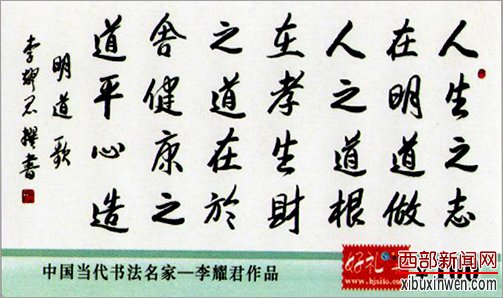 人生之志
在明道做
人之道根
在孝生財
之道在於
舍健康之
道平心造
明道歌
李耀君撰書
中国当代书法名家—李耀君作品
好礼
西部新闻网
xibuxinwen.cn